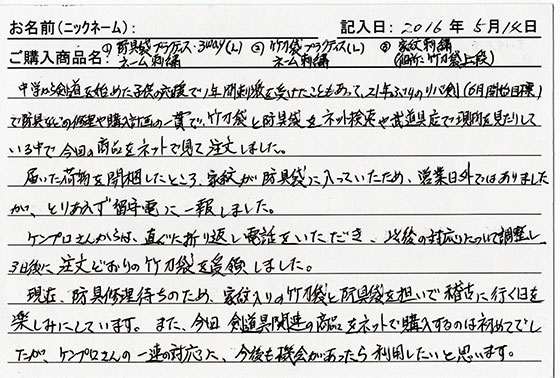 お名前(ニックネーム): 記入日: 2016 年 5月14日
ご購入商品名: ①防具袋プラクティス・3way(L) ②竹刀袋プラクティス(L) ③家紋刺繍
ネーム刺繍 ネーム刺繍 (個所:竹刀袋上段)
中学から剣道を始めた子供の応援で1年間刺激を受けたこともあって、21年ぶりのリバ剣(6月開始目標)
で防具などの修理や購入計画の一貫で、竹刀袋と防具袋をネット検索や武道具店で現物を見たりして
いる中で今回の商品をネットで見て注文しました。
届いた荷物を開梱したところ、家紋が防具袋に入っていたため、営業日外ではありました
が、とりあえず留守電に一報しました。
ケンプロさんからは、直ぐに折り返し電話をいただき、以後の対応について調整し、
3日後に注文どおりの竹刀袋を受領しました。
現在、防具修理待ちのため、家紋入りの竹刀袋と防具袋を担いで稽古に行く日を
楽しみにしています。また、今回 剣道具関連の商品をネットで購入するのは初めてでし
たが、ケンプロさんの一連の対応に、今後も機会があったら利用したいと思います。